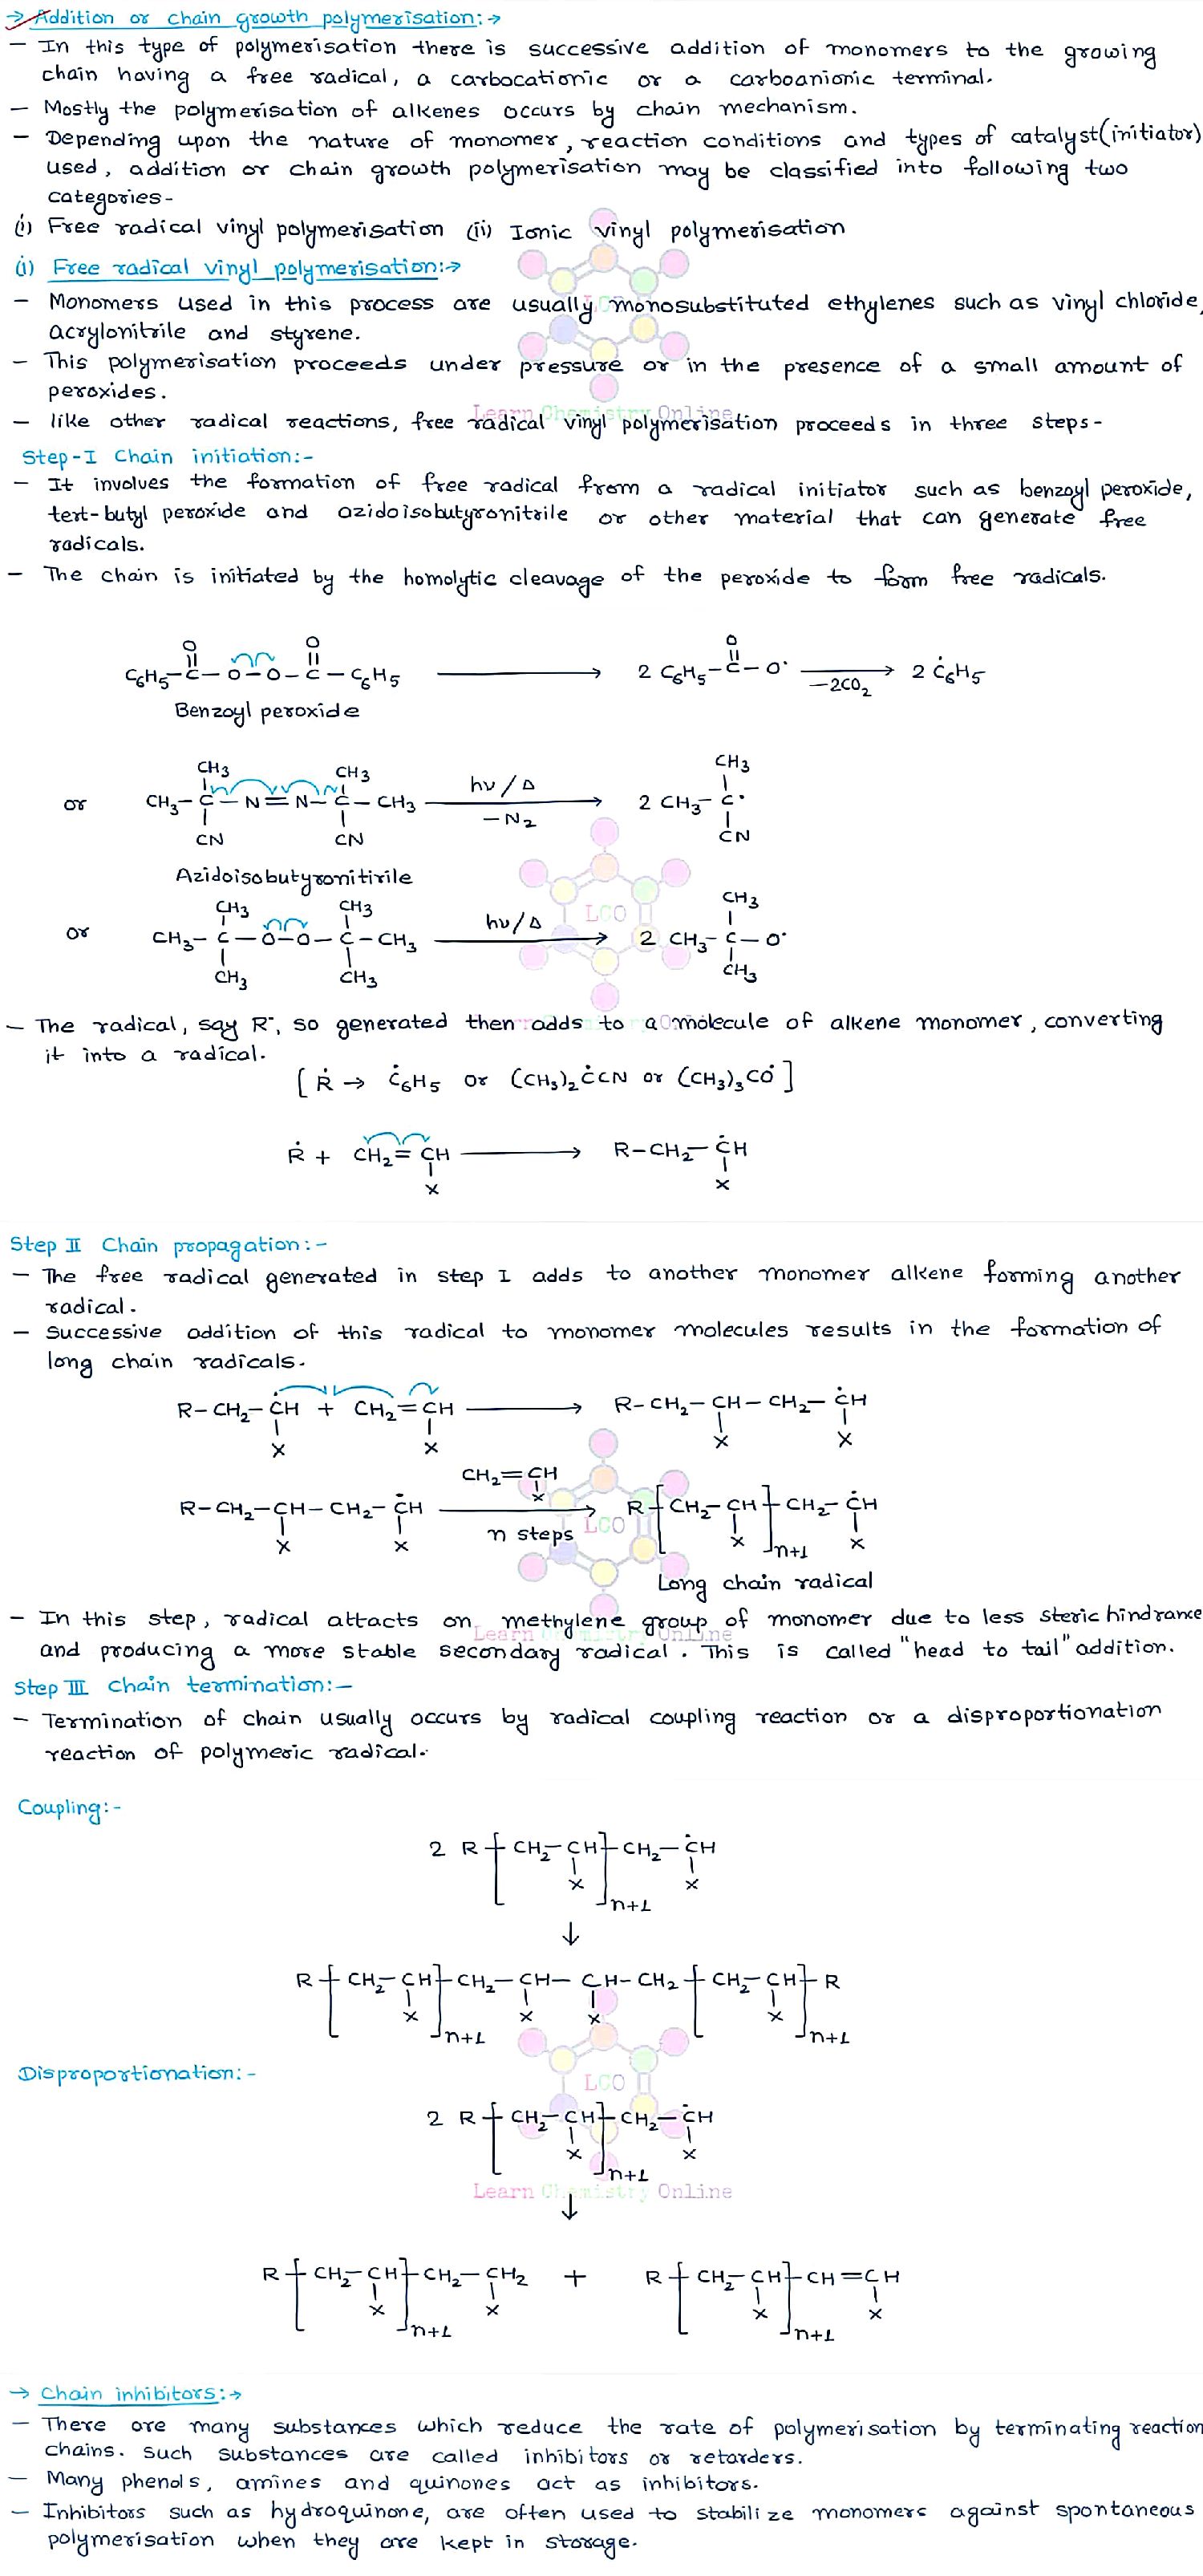 → Addition or chain growth polymerisation:→
– In this type of polymerisation there is successive addition of monomers to the growing
chain having a free radical, a carbocationic or a carboanionic terminal.
– Mostly the polymerisation of alkenes occurs by chain mechanism.
– Depending upon the nature of monomer, reaction conditions and types of catalyst(initiator)
used, addition or chain growth polymerisation may be classified into following two
categories-
(i) Free radical vinyl polymerisation (ii) Ionic vinyl polymerisation
(i) Free radical vinyl polymerisation:→
– Monomers used in this process are usually monosubstituted ethylenes such as vinyl chloride,
acrylonitrile and styrene.
– This polymerisation proceeds under pressure or in the presence of a small amount of
peroxides.
Learn Chemistry Online
– like other radical reactions, free radical vinyl polymerisation proceeds in three steps-
Step-I Chain initiation:-
– It involves the formation of free radical from a radical initiator such as benzoyl peroxide,
tert-butyl peroxide and azidoisobutyronitrile or other material that can generate free
radicals.
– The chain is initiated by the homolytic cleavage of the peroxide to form free radicals.
O O O
C6H5–C–O–O–C–C6H5 → 2 C6H5–C–O• → 2 Ċ6H5
–2CO2
Benzoyl peroxide
CH3 CH3 hν/Δ CH3
or CH3–C–N=N–C–CH3 → 2 CH3–C•
–N2
CN CN CN
Azidoisobutyronitirile
CH3 CH3 hν/Δ LCO CH3
or CH3–C–O–O–C–CH3 → 2 CH3–C–O•
CH3 CH3 CH3
– The radical, say R•, so generated then adds to a molecule of alkene monomer, converting
it into a radical.
[Ṙ → Ċ6H5 or (CH3)2ĊCN or (CH3)3CȮ]
Ṙ + CH2=CH → R–CH2–ĊH
X X
Step II Chain propagation:-
– The free radical generated in step I adds to another monomer alkene forming another
radical.
– Successive addition of this radical to monomer molecules results in the formation of
long chain radicals.
R–CH2–ĊH + CH2=CH → R–CH2–CH–CH2–ĊH
X X X X
CH2=CH
X
R–CH2–CH–CH2–ĊH → R–[CH2–CH]–CH2–ĊH
n steps LCO
X X X n+1 X
Long chain radical
– In this step, radical attacts on methylene group of monomer due to less steric hindrance
Learn Chemistry Online
and producing a more stable secondary radical. This is called "head to tail" addition.
Step III Chain termination:–
– Termination of chain usually occurs by radical coupling reaction or a disproportionation
reaction of polymeric radical.
Coupling:-
2 R–[CH2–CH]–CH2–ĊH
X n+1 X
↓
R–[CH2–CH]–CH2–CH–CH–CH2–[CH2–CH]–R
X n+1 X X X n+1
Disproportionation:-
LCO
2 R–[CH2–CH]–CH2–ĊH
X n+1 X
Learn Chemistry Online
↓
R–[CH2–CH]–CH2–CH2 + R–[CH2–CH]–CH=CH
X n+1 X X n+1 X
→ Chain inhibitors:→
– There are many substances which reduce the rate of polymerisation by terminating reaction
chains. Such substances are called inhibitors or retarders.
– Many phenols, amines and quinones act as inhibitors.
– Inhibitors such as hydroquinone, are often used to stabilize monomers against spontaneous
polymerisation when they are kept in storage.